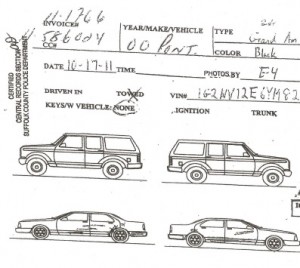 11-1266
INVOICE#
CC#
YEAR/MAKE/VEHICLE
00 Pont
TYPE Grand Am
COLOR Black
DATE 10-17-11 TIME
PHOTOS BY E-4
DRIVEN IN TOWED
KEYS/W VEHICLE: NONE
VIN#
IGNITION TRUNK
CERTIFIED
CENTRAL RECORDS SECTION
SUFFOLK COUNTY POLICE DEPARTMENT